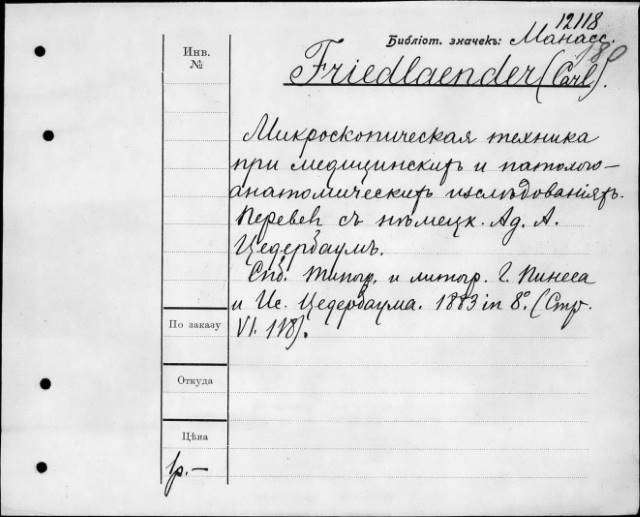 12118
Библіот. значекъ: Манасс.
180
Инв.
№
Friedlaender (Carl).
Микроскопическая техника
при медицинскихъ и патолого-
анатомическихъ изслѣдованіяхъ.
Перевелъ съ нѣмецк. Ад. А.
Цедербаумъ.
Спб. Типогр. и литогр. Г. Пинеса
и Ис. Цедербаума. 1883 in 8º. (Стр.
VI. 118).
По заказу
Откуда
Цѣна
1р.—